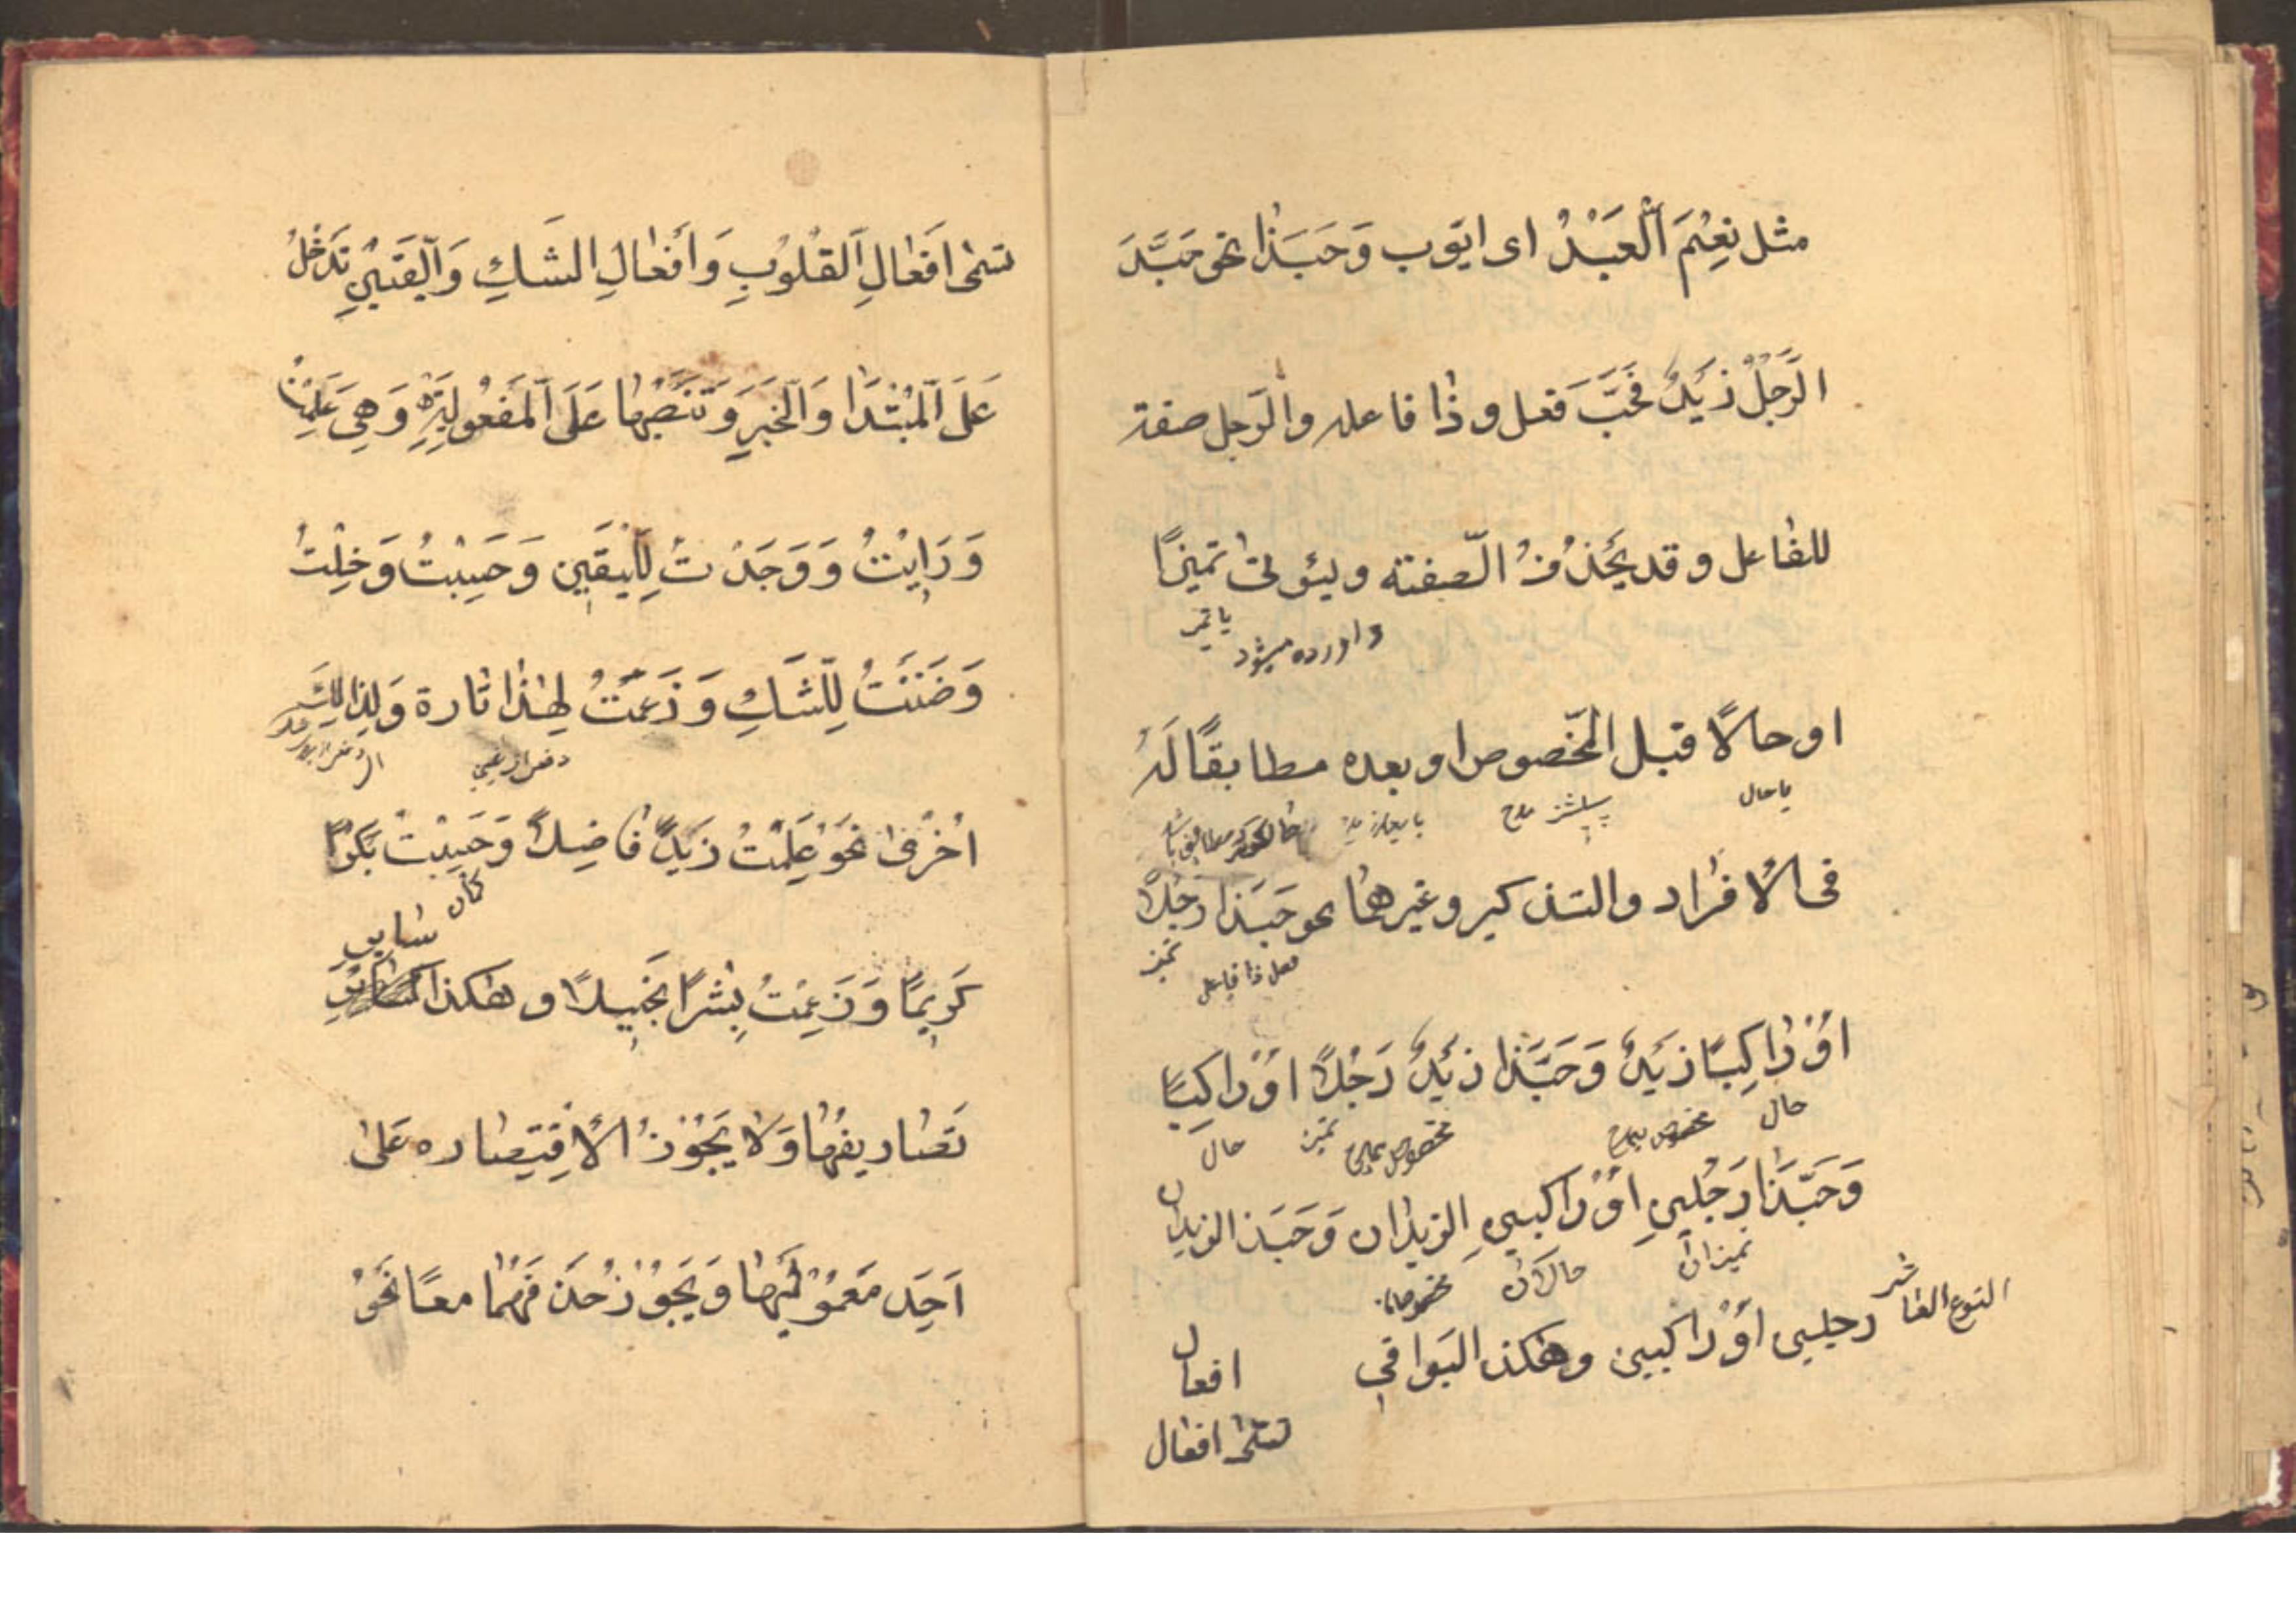 مثل نِعْمَ الْعَبْدُ اى ايّوب وَحَبَّذا نحو حَبَّذَ
الرَّجُلُ زَيْدٌ فَحَبَّ فعل و ذا فاعله والرّجل صفة
للفاعل و قد يُحْذَفُ الصّفته و يُؤتى تميزًا
يا تميز
و آورده ميشود
او حالًا قبل المخصوص او بعده مطابقًا لَهُ
يا حال
فى الأفراد والتذكير وغيرهما نحو حَبَّذا رَجُلًا
تميز
فعل ذا فاعل
اَوْ راكِبًا زَيْدٌ وَحَبَّذا زَيْدٌ رَجُلًا اَوْ راكِبًا
حال
مخصوص بمدح
مخصوص بمدح
تميز
حال
وَحَبَّذا رَجُلَيْنِ اَوْ راكبينِ الزيدان وَحَبَّذ الزيدان
تميزان
حالان
النوع العاشر
رجلين اَوْ راكبين وهكذ البَواقى
افعال
تسمّى افعال
تسمّى اَفعالِ القُلُوبِ وَاَفْعالِ الشَكِ وَالْيَقينِ تَدْخُلُ
عَلَى الْمُبْتَدَا وَالْخَبَرِ وَتَنْصِبُها عَلَى الْمَفْعُولِيَّةِ وَهِىَ عَلِمْتُ
وَرَاَيْتُ وَوَجَدْتُ لِلْيَقينِ وَحَسِبْتُ وَخِلْتُ
وَضَنَنْتُ لِلشَّكِ وَزَعَمْتُ لِهذا تارة وَلِذالِكَ
اُخْرى نَحْوُ عَلِمْتُ زَيْدًا فاضِلًا وَحَسِبْتُ بَكْرًا
كريمًا وَزَعِمْتُ بِشْرًا بَخيلًا و هكذا
كان ساير
تَصاريفُها وَلا يَجُوْزُ الاِقْتِصاره عَلى
اَحَدِ مَعْمُوْلَيْها وَيَجُوْزُ حذفَهُما معًا نَحْوُ